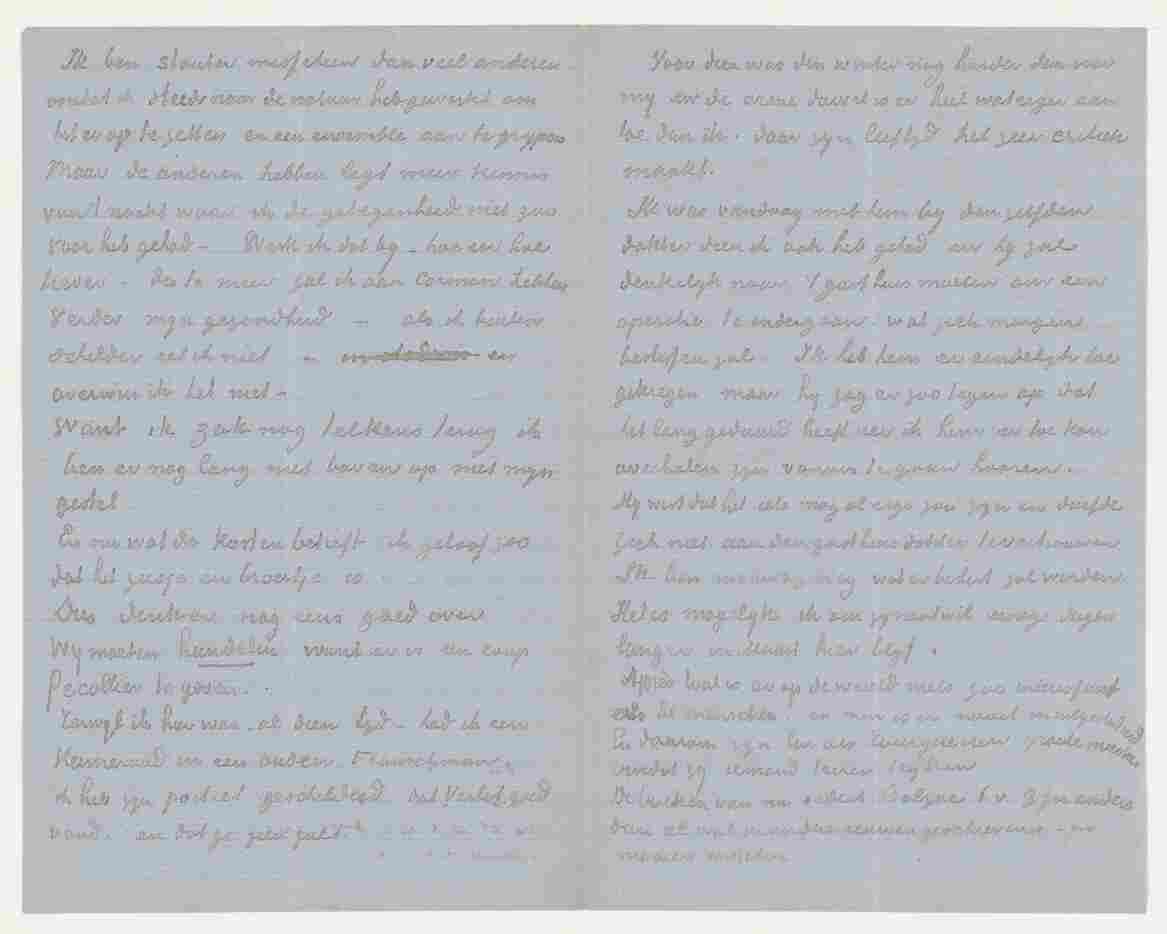 Ik ben stouter misschien dan veel anderen
omdat ik steeds naar de natuur heb gewerkt om
het er op te zetten en een ensemble aan te grypen
Maar de anderen hebben legt meer kennis
van't naakt waar ik de gelegenheid niet zoo
voor heb gehad – Werk ik dat by – hoe eer hoe
liever – des te meer zal ik aan Cormon hebben
Verder myn gezondheid – als ik buiten
schilder eet ik niet – en
overwin ik het niet –
Want ik zak nog telkens terug ik
ben er nog lang niet boven op met myn
gestel.
En nu wat de kosten betreft ik geloof zoo
dat het zusje en broertje is
Dus denk er nog eens goed over
Wy moeten handelen want er is een coup
de collier te geven.
Terwyl ik hier was al dien tyd – had ik een
kameraad in een ouden Franschman
ik heb zyn portret geschilderd dat Verlat goed
vond. en dat ge zien zult.
Voor dien was den winter nog harder dan voor
my en de arme duvel is er heel wat erger aan
toe dan ik. daar zyn leeftyd het zeer critiek
maakt.
Ik was vandaag met hem by den zelfden
dokter dien ik ook heb gehad en hy zal
denkelyk naar 't gasthuis moeten om een
operatie te ondergaan. wat zich morgen
beslissen zal. Ik heb hem er eindelyk toe
gekregen maar hy zag er zoo tegen op dat
het lang geduurd heeft eer ik hem er toe kon
overhalen zyn vonnis te gaan hooren.
Hy wist dat het iets nog al ergs zou zyn en durfde
zich niet aan den gasthuis dokter te vertrouwen
Ik ben nieuwsgierig wat er beslist zal worden
Het is mogelyk ik om zynentwil eenige dagen
langer in Maart hier blyf.
Après wat is er op de wereld meer zoo interessant
als de menschen. en men is er nooit in uitgestudeerd
En daarom zyn lui als Tourguenief groote meesters
omdat zy iemand leeren kyken
De boeken van nu sedert Balzac b.v. zyn anders
dan al wat in andere eeuwen geschreven is – en
mooier misschien